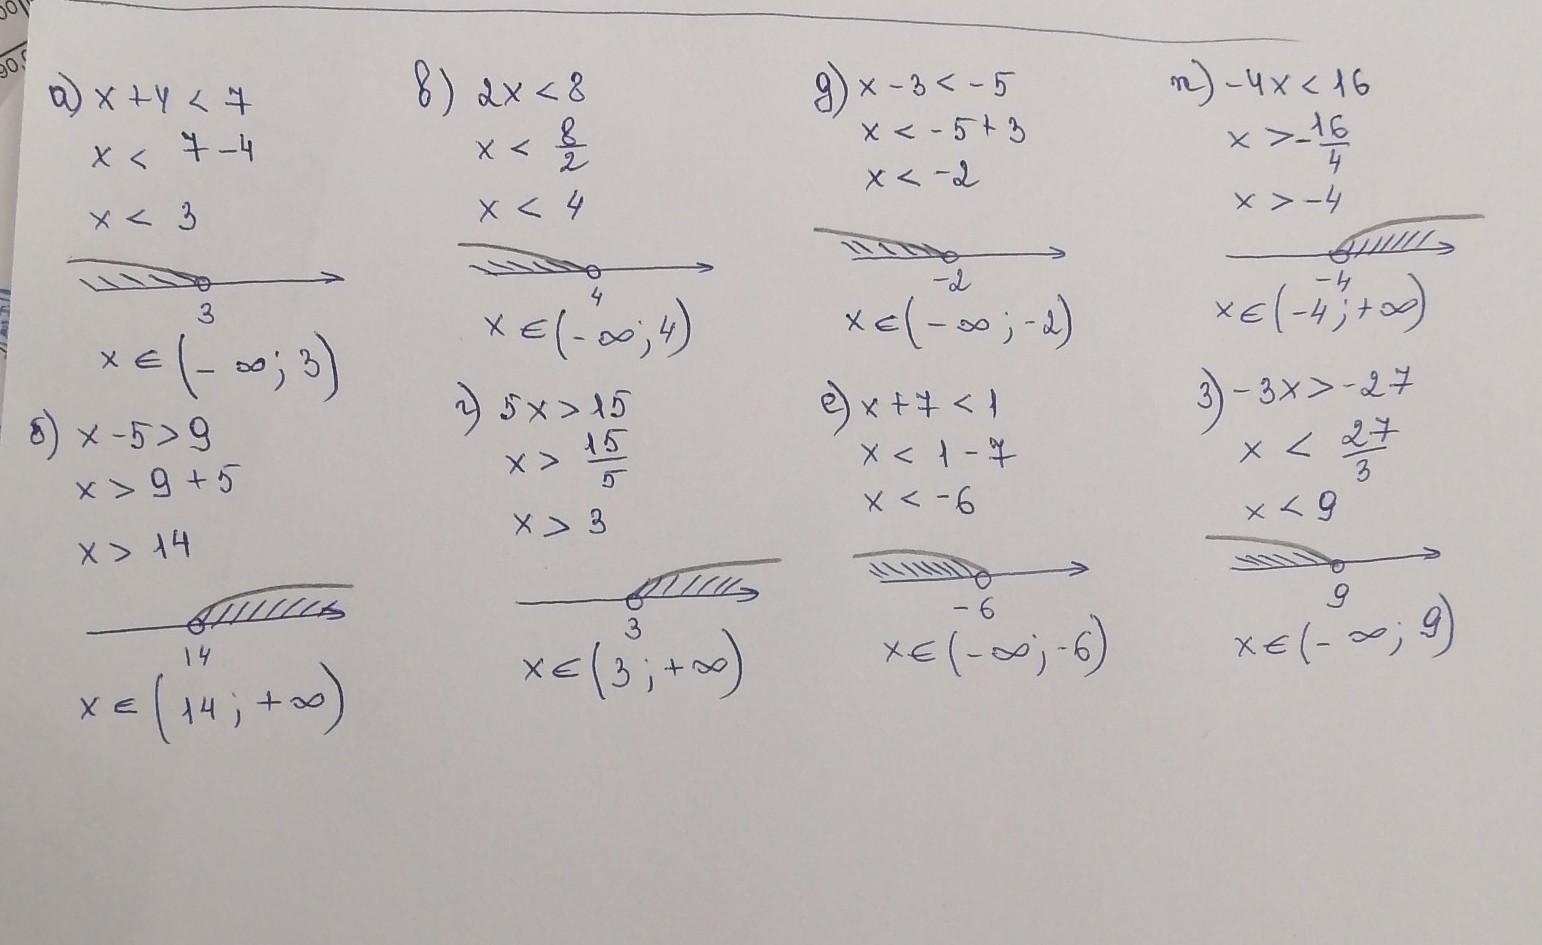 а) x + 4 < 7
x < 7 - 4
x < 3
3
x ∈ (- ∞; 3)
б) x - 5 > 9
x > 9 + 5
x > 14
14
x ∈ (14; +∞)
в) 2x < 8
x < 8/2
x < 4
4
x ∈ (-∞; 4)
г) 5x > 15
x > 15/5
x > 3
3
x ∈ (3; +∞)
д) x - 3 < -5
x < -5 + 3
x < -2
-2
x ∈ (-∞; -2)
е) x + 7 < 1
x < 1 - 7
x < -6
-6
x ∈ (-∞; -6)
ж) -4x < 16
x > -16/4
x > -4
-4
x ∈ (-4; +∞)
з) -3x > -27
x < 27/3
x < 9
9
x ∈ (-∞; 9)